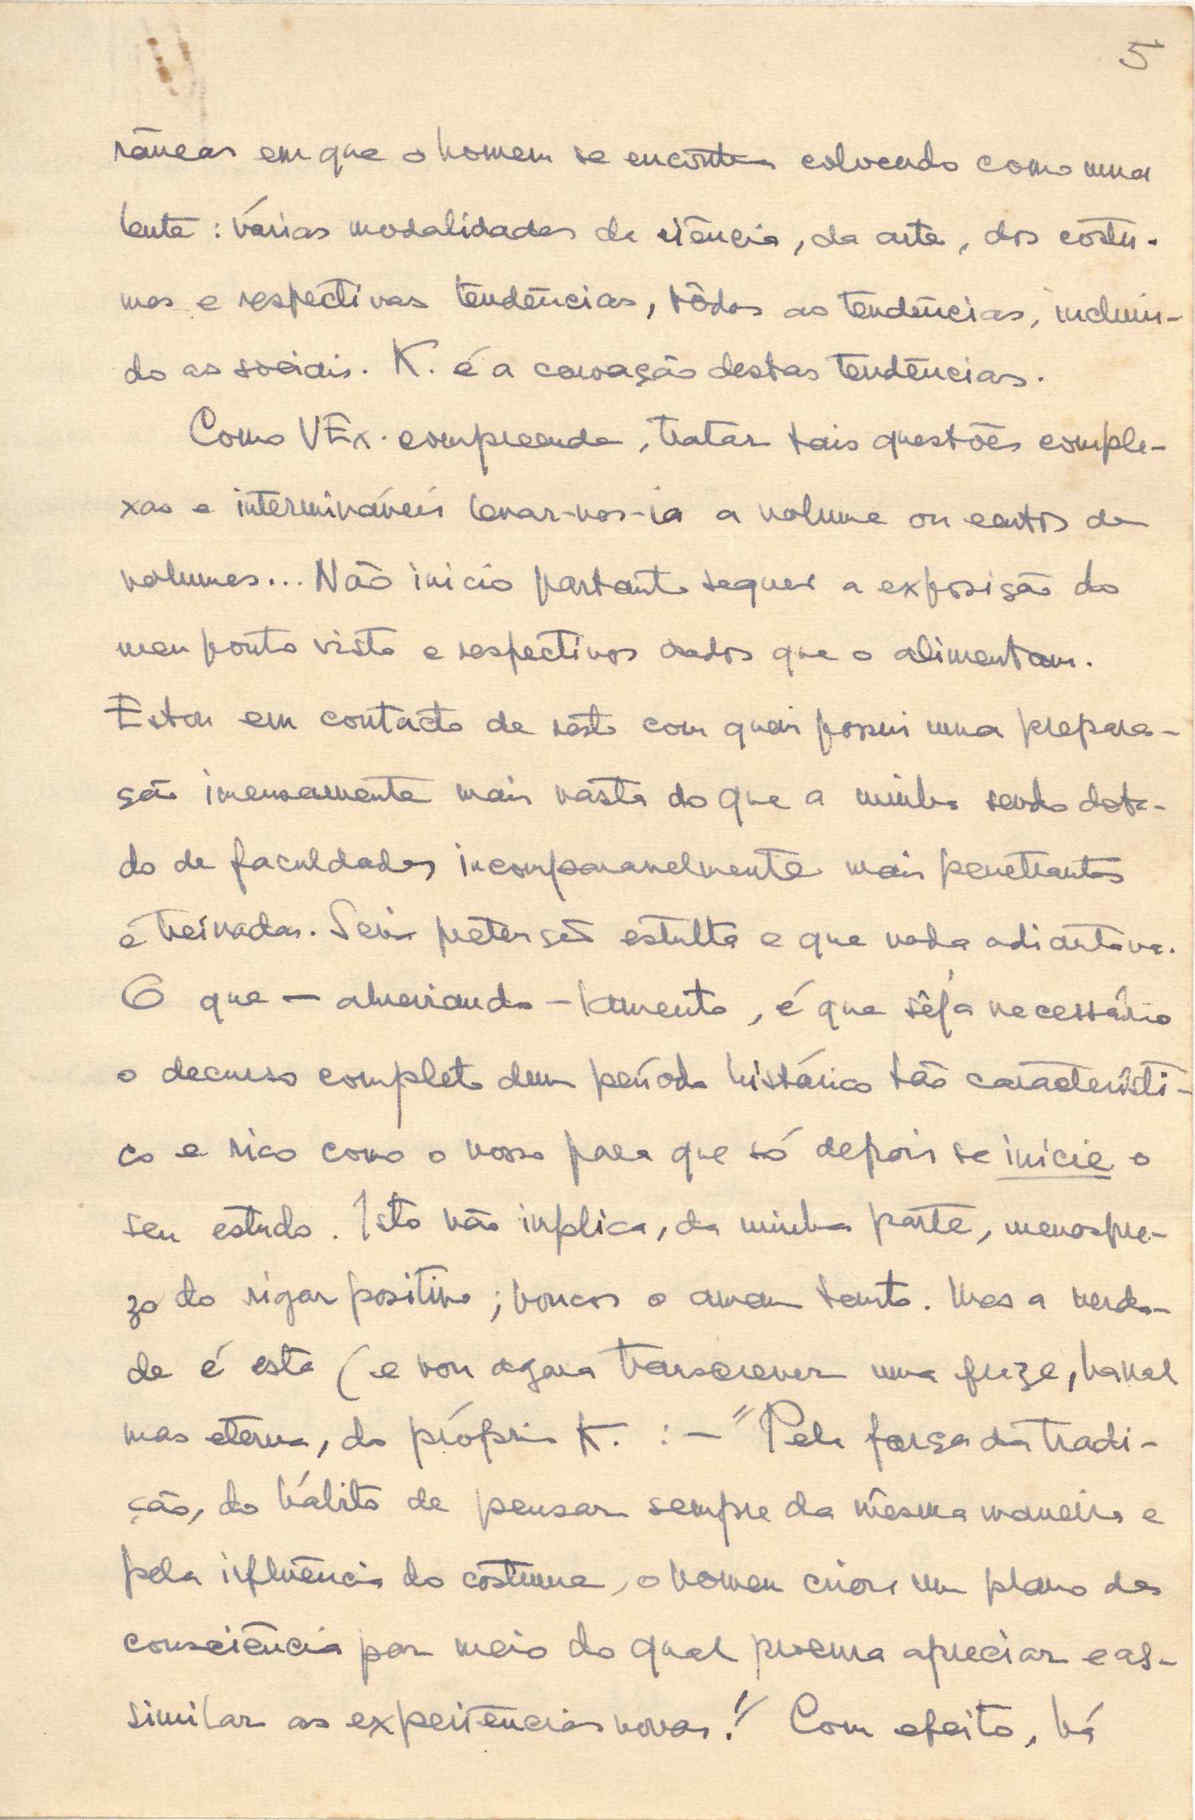 5
râneas em que o homem se encontra colocando como uma
lente: várias modalidades da ciência, da arte, dos costu-
mes e respectivas tendências, tôdas as tendências, incluin-
do as sociais. K. é a coroação destas tendências.
Como VEx. compreende, tratar tais questões comple-
xas e intermináveis levar-nos-ia a volume ou centos de
volumes... Não inicio portanto sequer a exposição do
meu ponto vista e respectivos dados que o alimentam.
Estou em contacto de resto com quem possui uma prepara-
ção imensamente mais vasta do que a minha sendo dota-
do de faculdades incomparavelmente mais penetrantes
e treinadas. Seria pretensão estulta e que nada adiantava.
O que — lamento, é que sêja necessário
o decurso completo dum período histórico tão característi-
co e rico como o nosso para que só depois se inicie o
seu estudo. Isto não implica, da minha parte, menospre-
zo do rigor positivo; poucos o amam tanto. Mas a verda-
de é esta (e vou agora transcrever uma frize, banal
mas eterna, do próprio K. : — "Pela força da tradi-
ção, do hábito de pensar sempre da mesma maneira e
pela influência do costume, o homem criou um plano de
consciência por meio do qual procura apreciar e as-
similar as experiências novas!" Com efeito, há